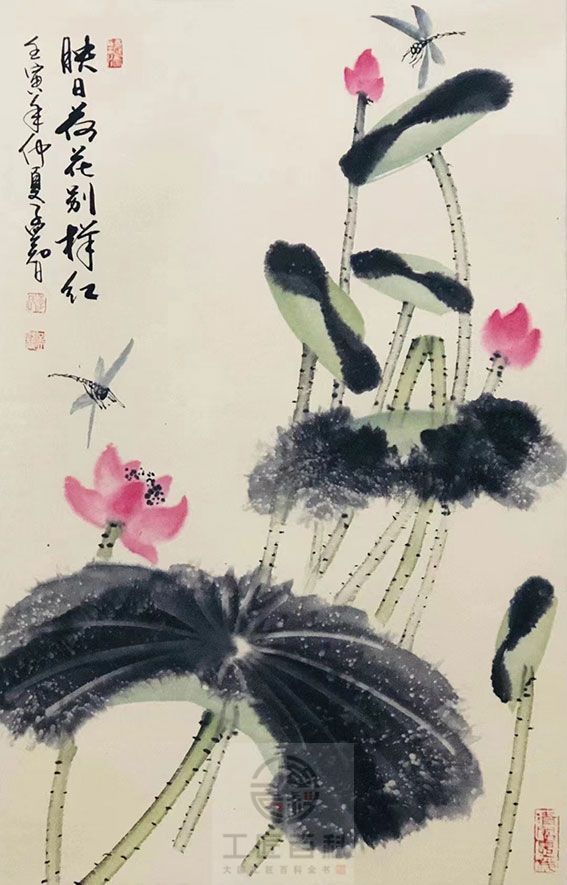 映日荷花别样红
壬寅年仲夏
工匠百科
大国工匠百科全书